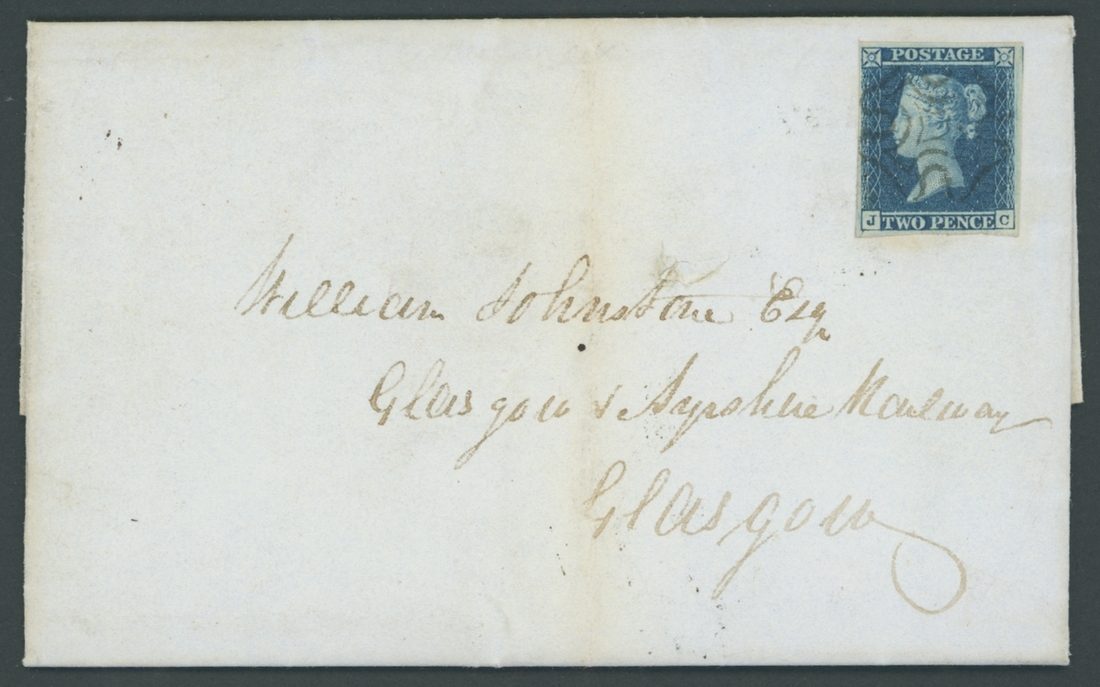 POSTAGE
J TWO PENCE C
William Johnstone Esq
Glasgow & Ayrshire Railway
Glasgow